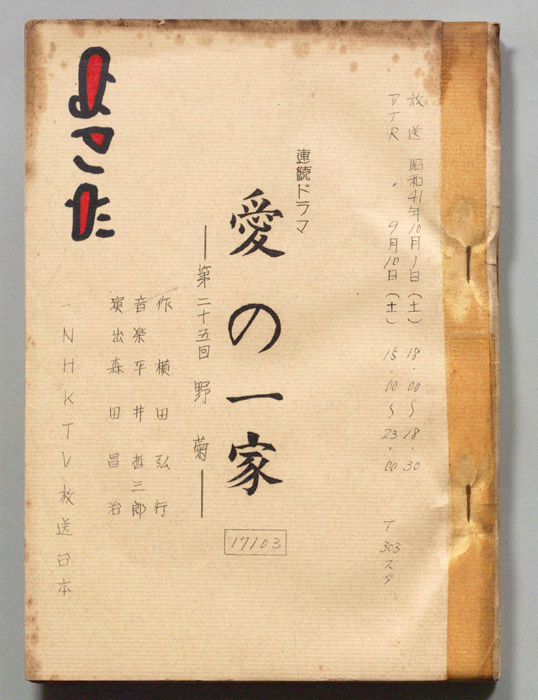 放送 昭和41年10月1日(土) 18.00〜18.30
VTR 〃 9月10日(土) 15.00〜23.00 T303スタ
連続ドラマ
愛の一家
―第二十五回 野菊―
17103
作 横田弘行
音楽 平井哲三郎
演出 森田昌治
NHKTV放送台本
よこた